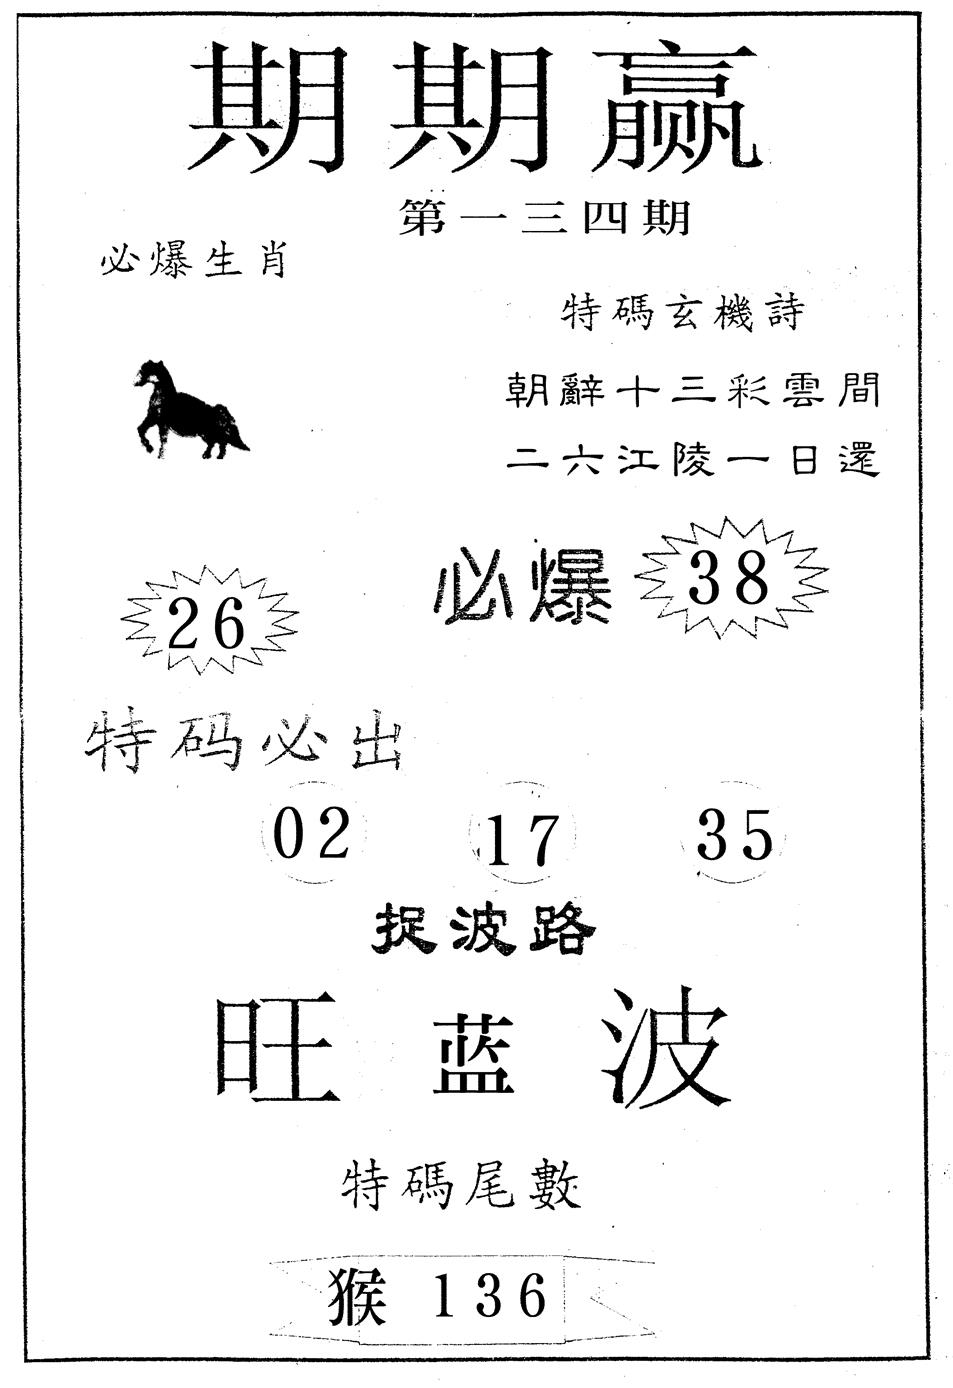 期期赢
第一三四期
必爆生肖
特碼玄機詩
朝辭十三彩雲間
二六江陵一日還
必爆 38
26
特码必出
02 17 35
捉波路
旺蓝波
特碼尾數
猴 136